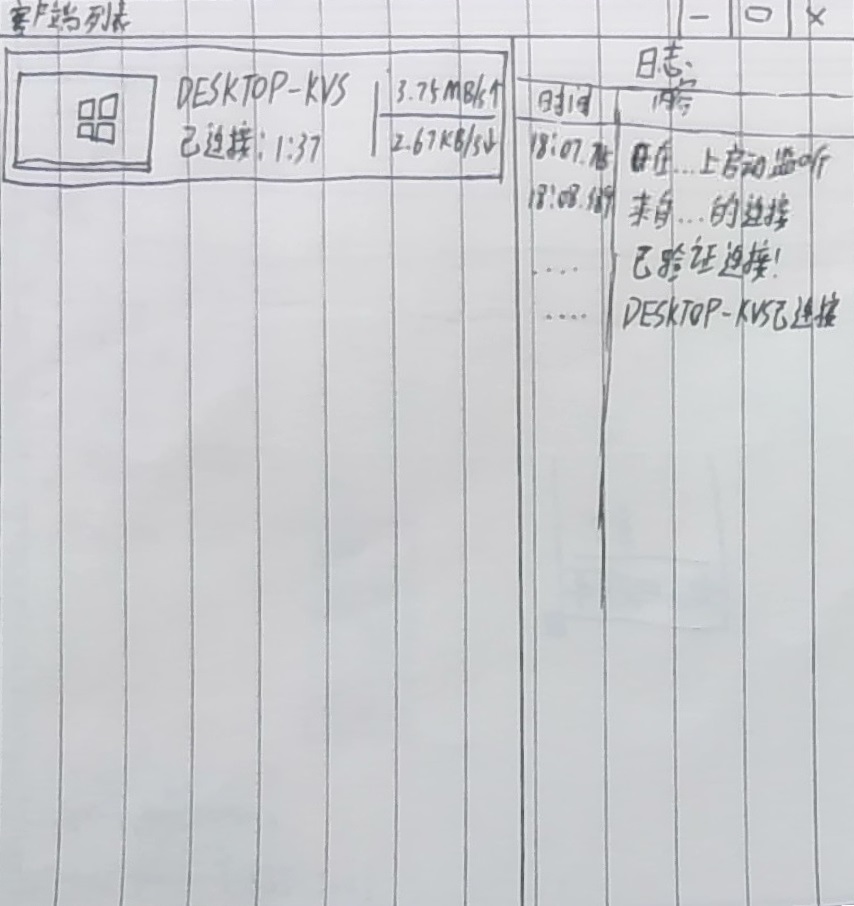 客户端列表
DESKTOP-KVS
已连接：1:37
3.75MB/s↑
2.67KB/s↓
日志：
时间 内容
18:07.75 已在...上启动监听
18:08.189 来自...的连接
.... 已验证连接！
.... DESKTOP-KVS已连接